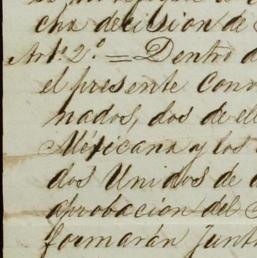 cha decision de
Art.º 2.º = Dentro d
el presente Conv
nados, dos de ell
Mexicana y los
dos Unidos de
aprobacion del
formarán Junt